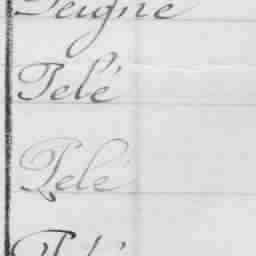 Peigne
Pelé
Pelé